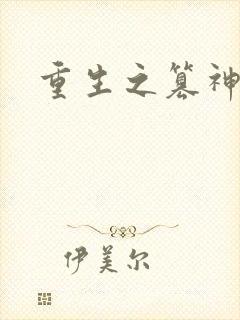 重生之篡神
伊美尔